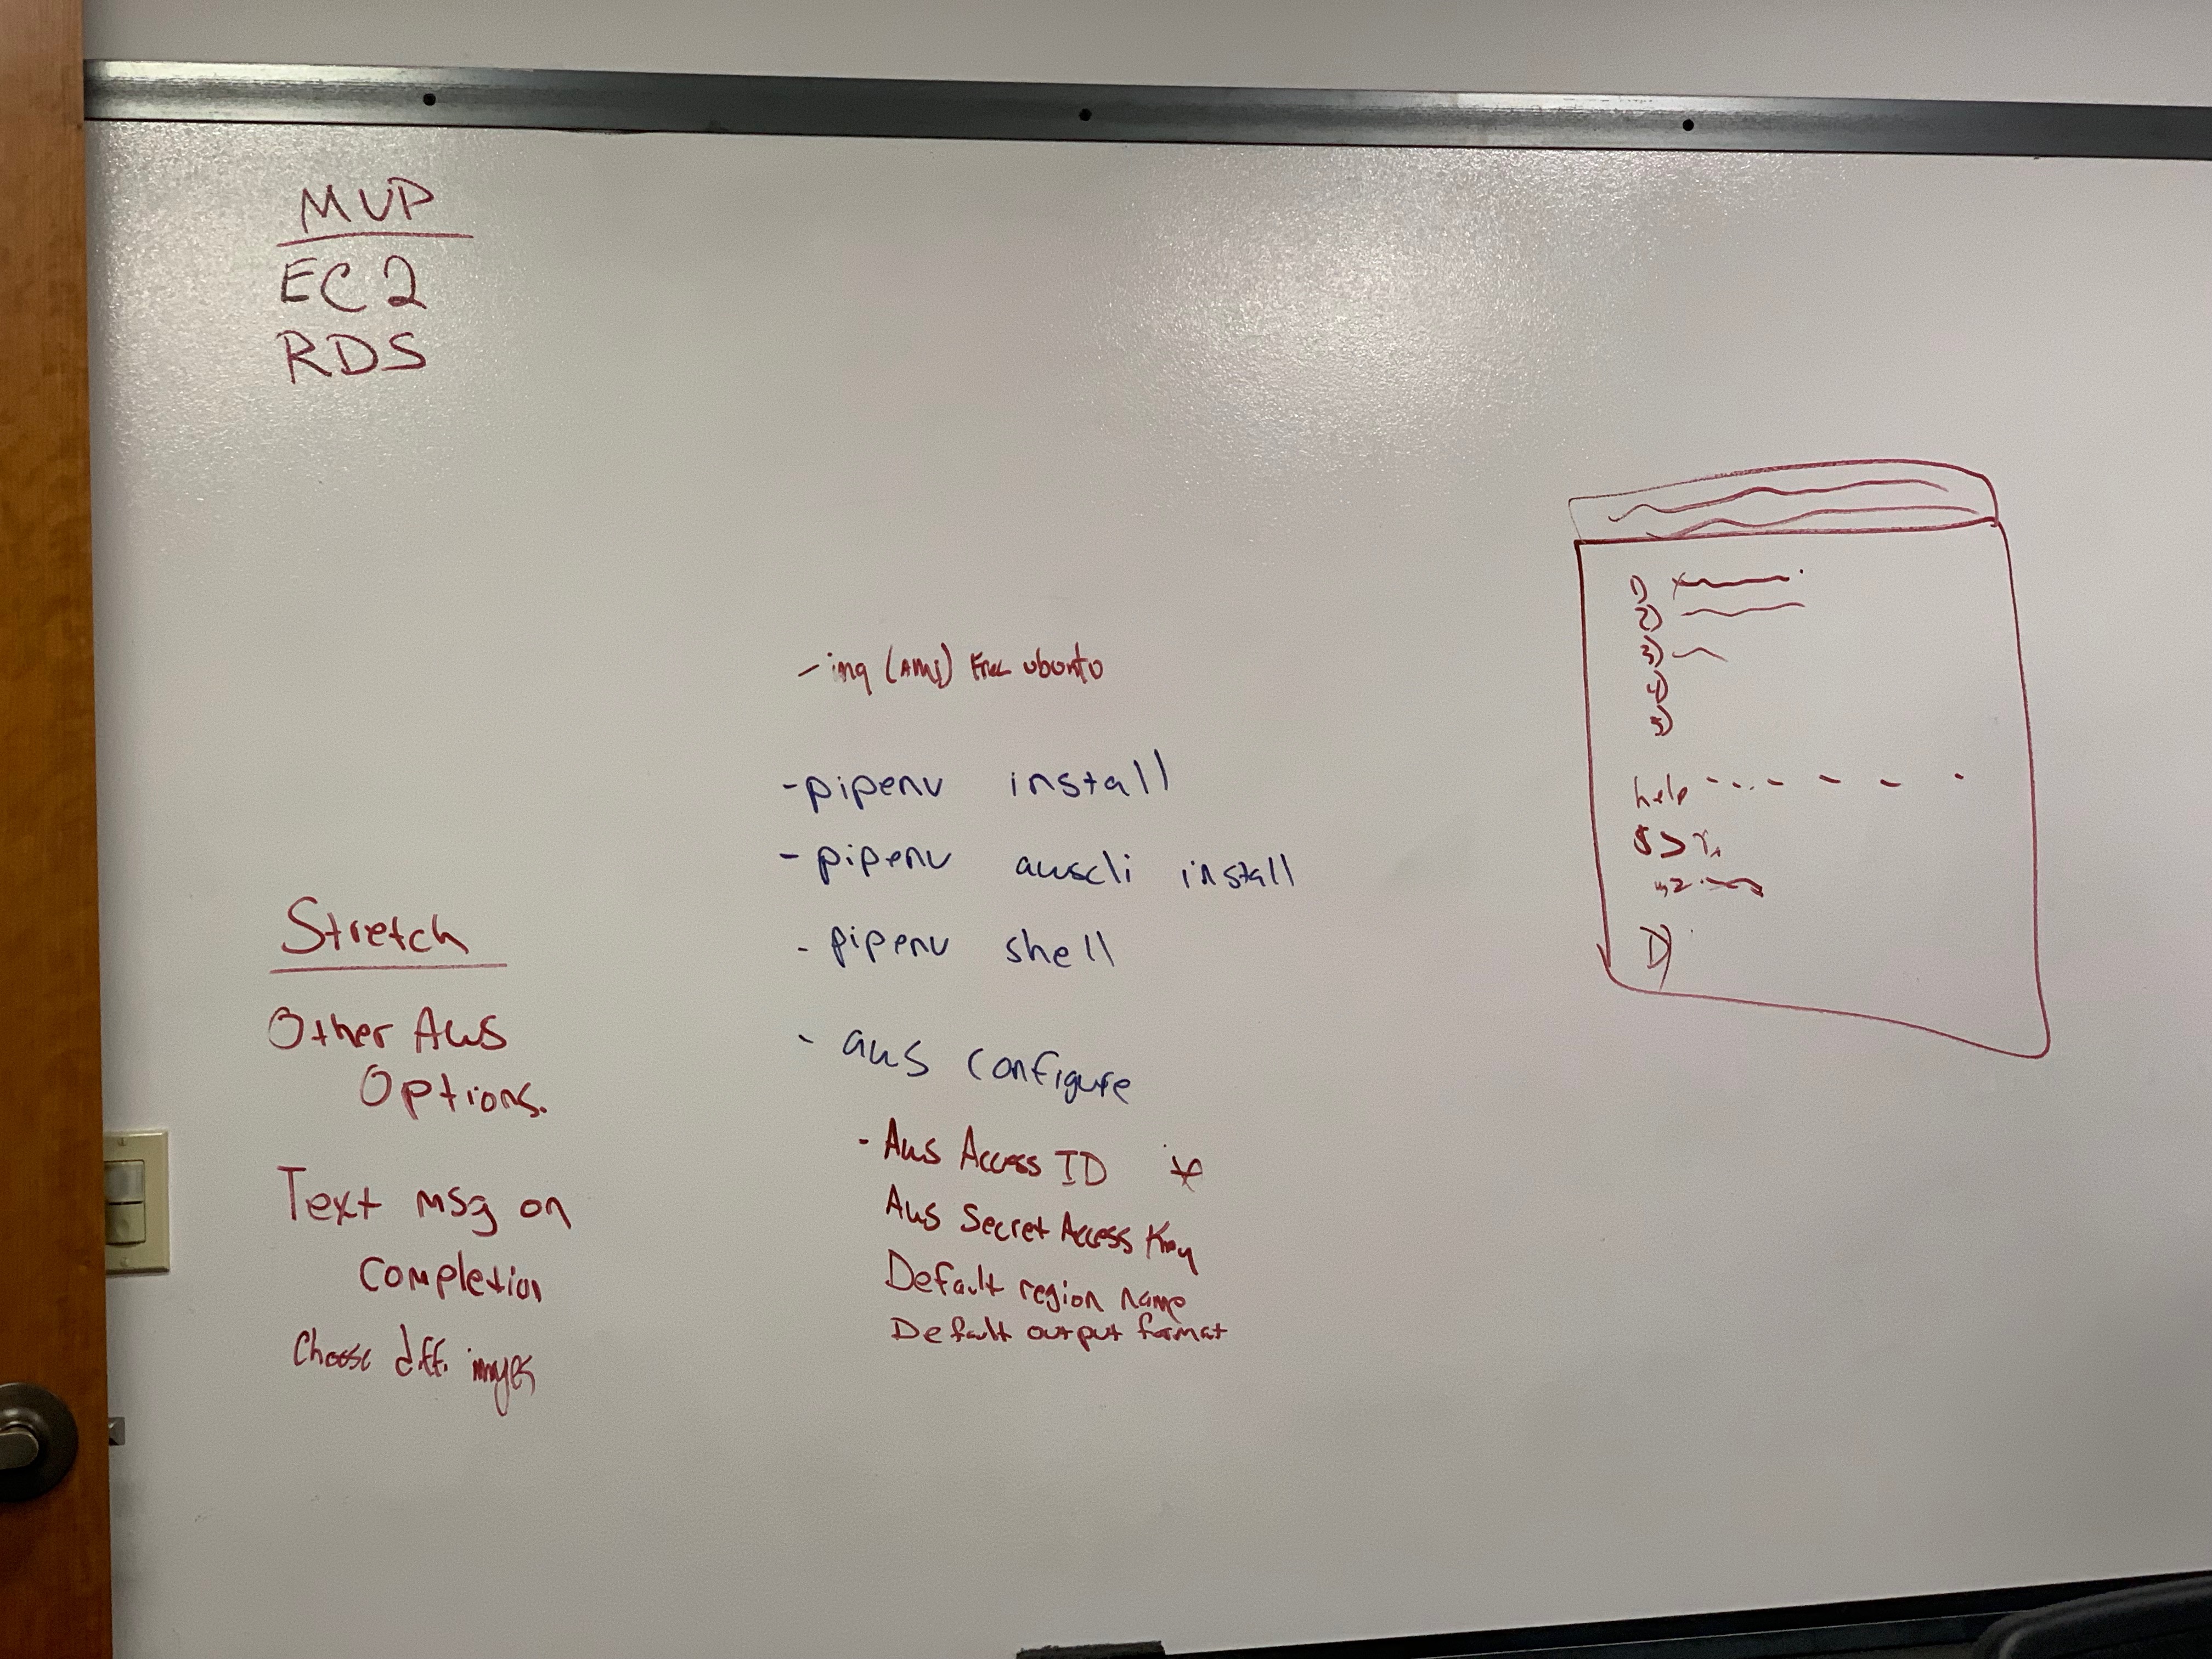 MVP
EC2
RDS
Stretch
Other AWS
Options.
Text msg on
Completion
Choose diff. images
- img (AMI) Free ubunto
- pipenv install
- pipenv awscli install
- pipenv shell
- aws configure
- Aws Access ID *
Aws Secret Access Key
Default region name
Default output format
1)
2)
3)
4)
5)
help
$>
D)